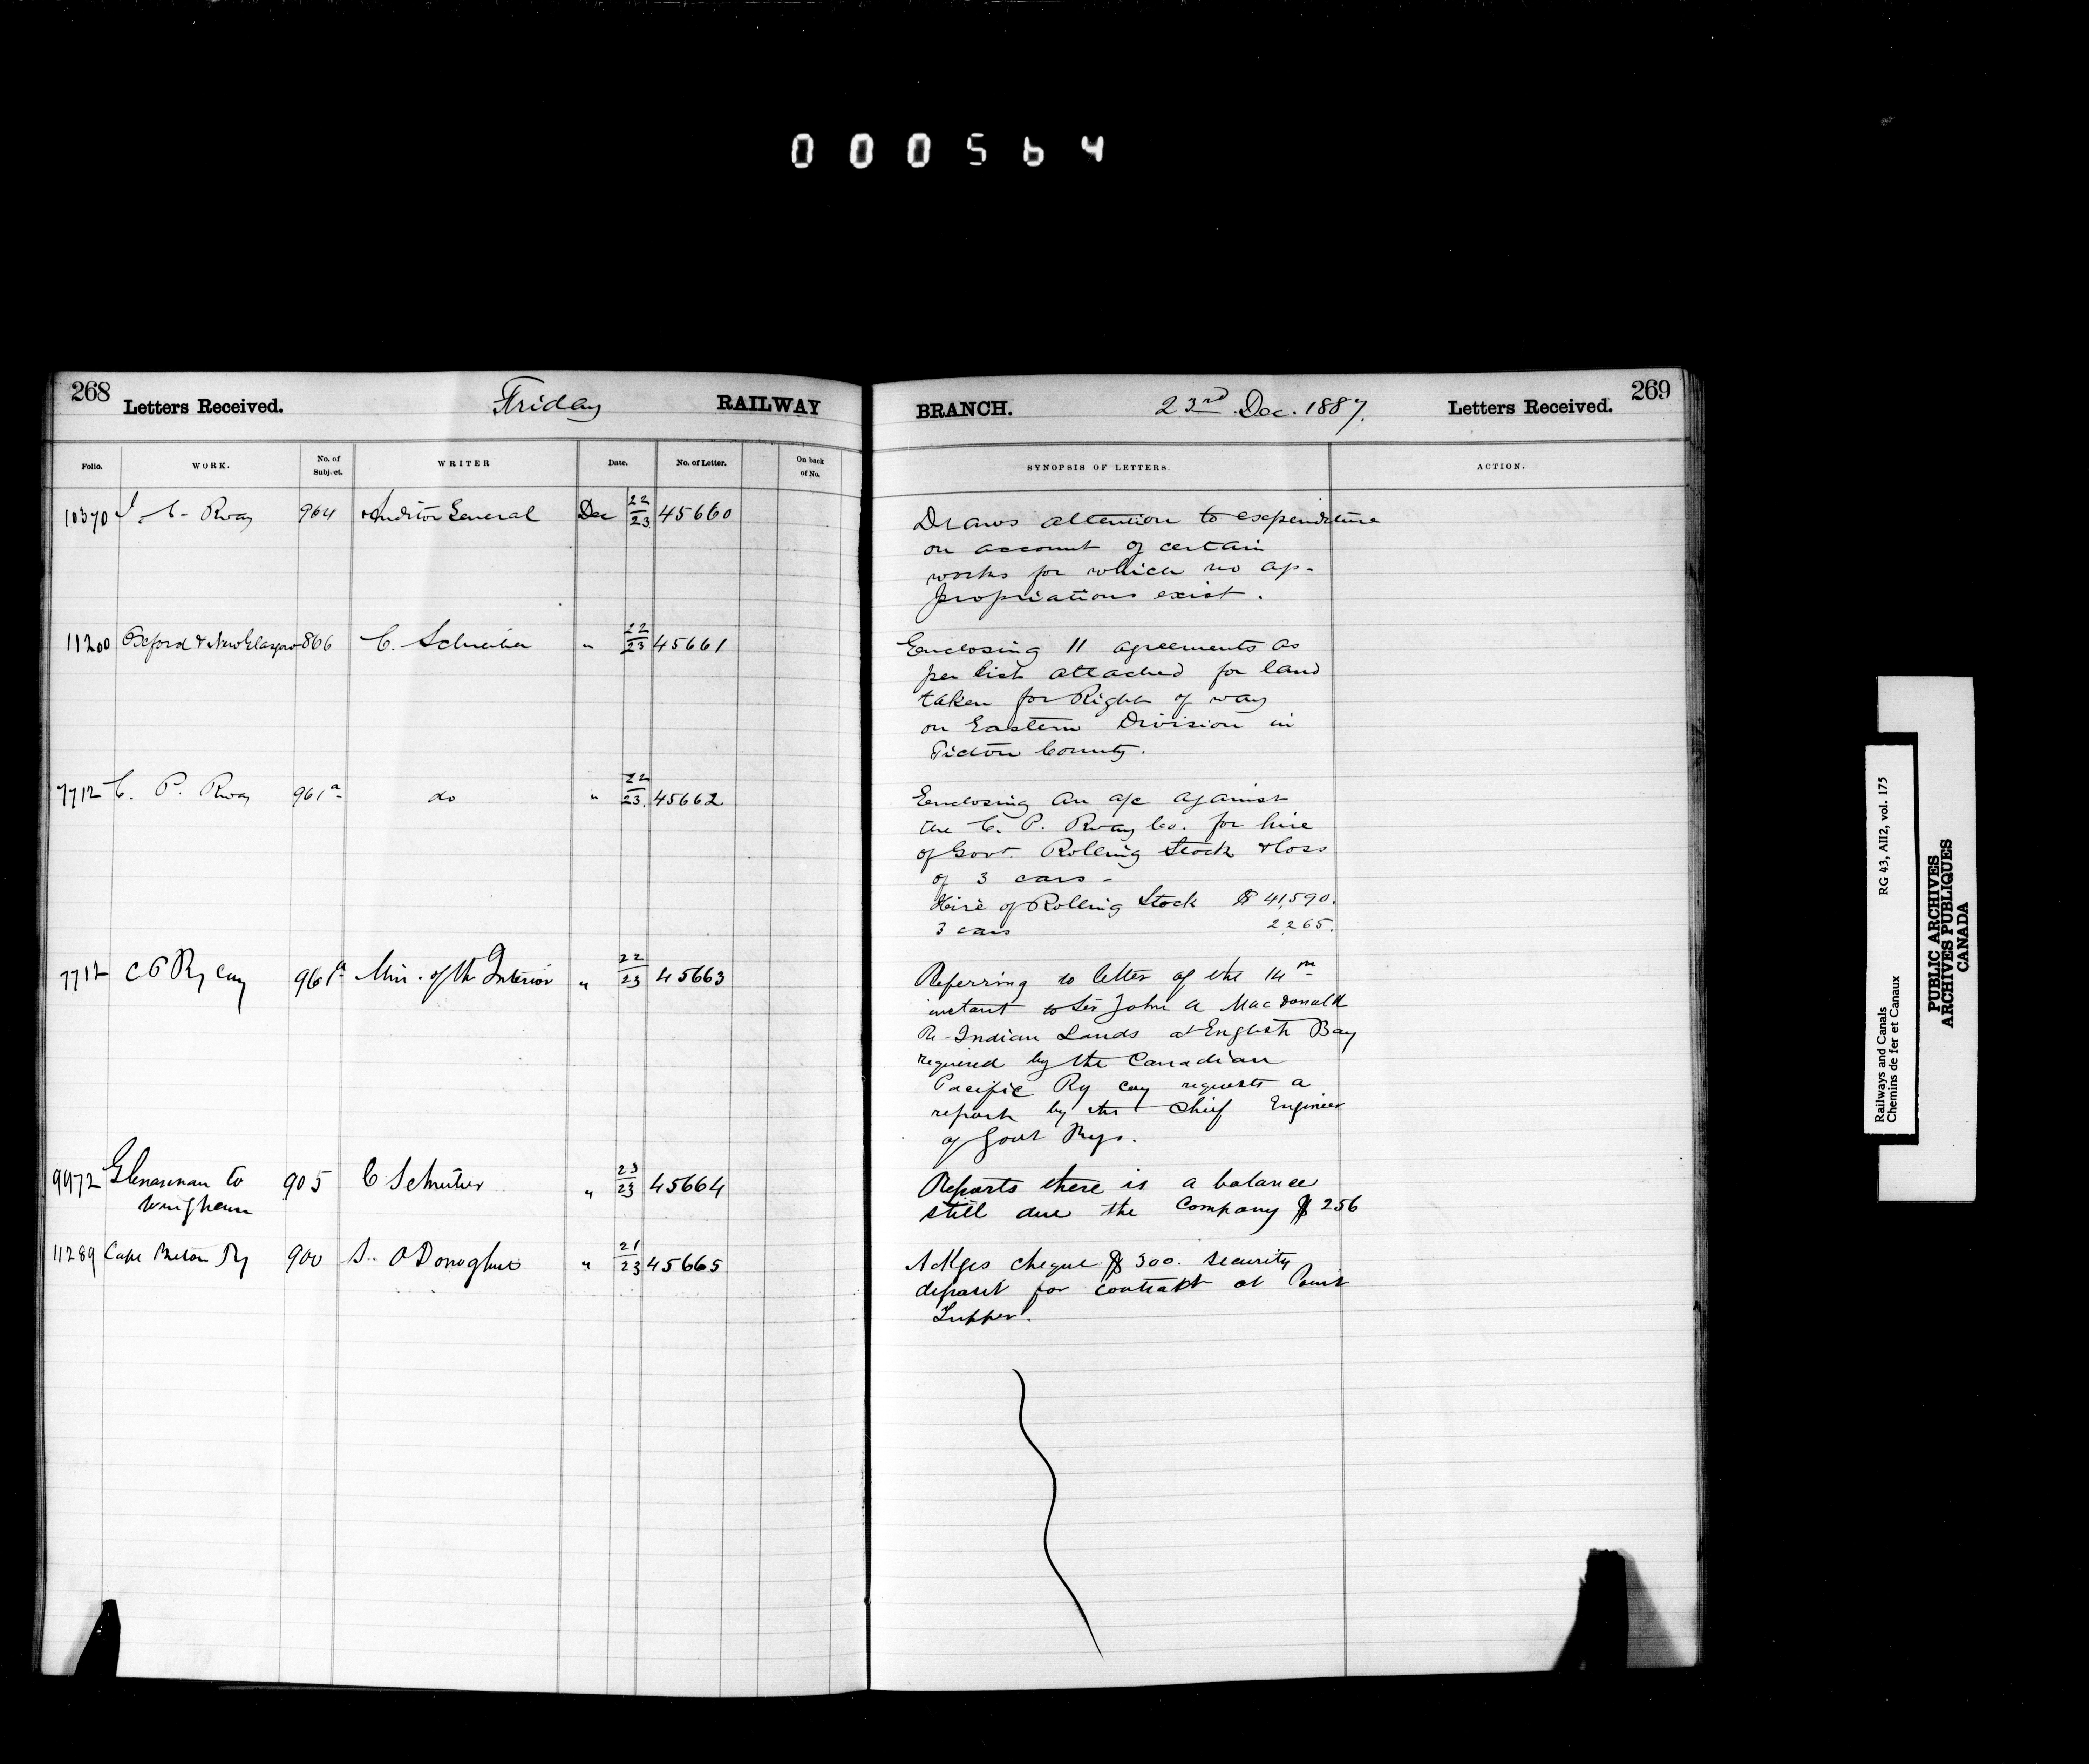 000564
268 Letters Received. Friday RAILWAY
Folio. WORK. No. of Subject. WRITER Date. No. of Letter. On back of No.
10370 I. C. Rway 964 Auditor General Dec 22/23 45660
11200 Oxford & New Glasgow 866 C. Schreiber " 22/23 45661
7712 C. P. Rway 961a do " 22/23 45662
7712 C P Ry Coy 961a Min. of the Interior " 22/23 45663
9972 Glenannan to 905 C Schreiber " 23/23 45664
Wingham
11289 Cape Breton Ry 900 S. O'Donoghue " 21/23 45665
BRANCH. 23rd Dec. 1887. Letters Received. 269
SYNOPSIS OF LETTERS. ACTION.
Draws attention to expenditure
on account of certain
works for which no ap-
propriations exist.
Enclosing 11 agreements as
per list attached for land
taken for Right of way
on Eastern Division in
Pictou County.
Enclosing an a/c against
the C. P. Rway Co. for hire
of Govt. Rolling Stock & loss
of 3 cars -
Hire of Rolling Stock $ 41,590.
3 cars 2,265.
Referring to letter of the 14th
instant to Sir John A MacDonald
Re-Indian Lands at English Bay
required by the Canadian
Pacific Ry Coy requests a
report by the Chief Engineer
of Govt Rys.
Reports there is a balance
still due the Company $ 256
Adkges cheque $ 300. security
deposit for contract at Point
Tupper.
Railways and Canals RG 43, AII2, vol. 175
Chemins de fer et Canaux
PUBLIC ARCHIVES
ARCHIVES PUBLIQUES
CANADA